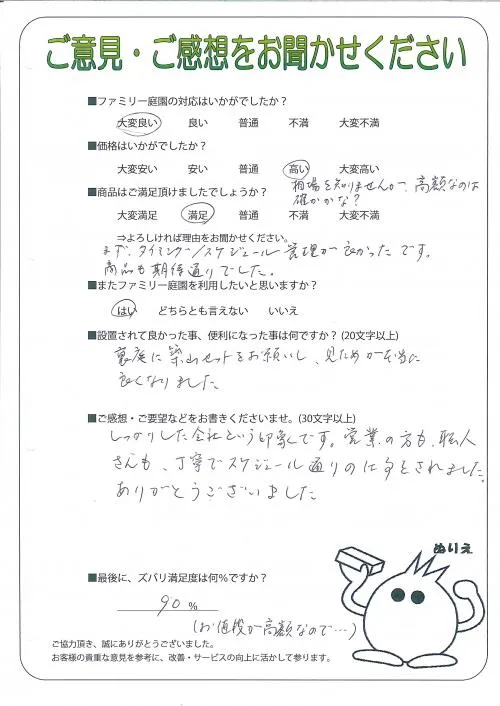 ご意見・ご感想をお聞かせください
■ファミリー庭園の対応はいかがでしたか？
大変良い 良い 普通 不満 大変不満
■価格はいかがでしたか？
大変安い 安い 普通 高い 大変高い
相場を知りませんが、高額なのは
確かかな？
■商品はご満足頂けましたでしょうか？
大変満足 満足 普通 不満 大変不満
⇒よろしければ理由をお聞かせください。
まず、タイミング/スケジュール管理が良かったです。
商品も期待通りでした。
■またファミリー庭園を利用したいと思いますか？
はい どちらとも言えない いいえ
■設置されて良かった事、便利になった事は何ですか？(20文字以上)
裏庭に築山セットをお願いし、見ためが本当に
良くなりました
■ご感想・ご要望などをお書きくださいませ。(30文字以上)
しっかりした会社という印象です。営業の方も、職人
さんも、丁寧でスケジュール通りの仕事をされました。
ありがとうございました
ぬりえ
■最後に、ズバリ満足度は何％ですか？
90 %
(お値段が高額なので…)
ご協力頂き、誠にありがとうございました。
お客様の貴重な意見を参考に、改善・サービスの向上に活かして参ります。